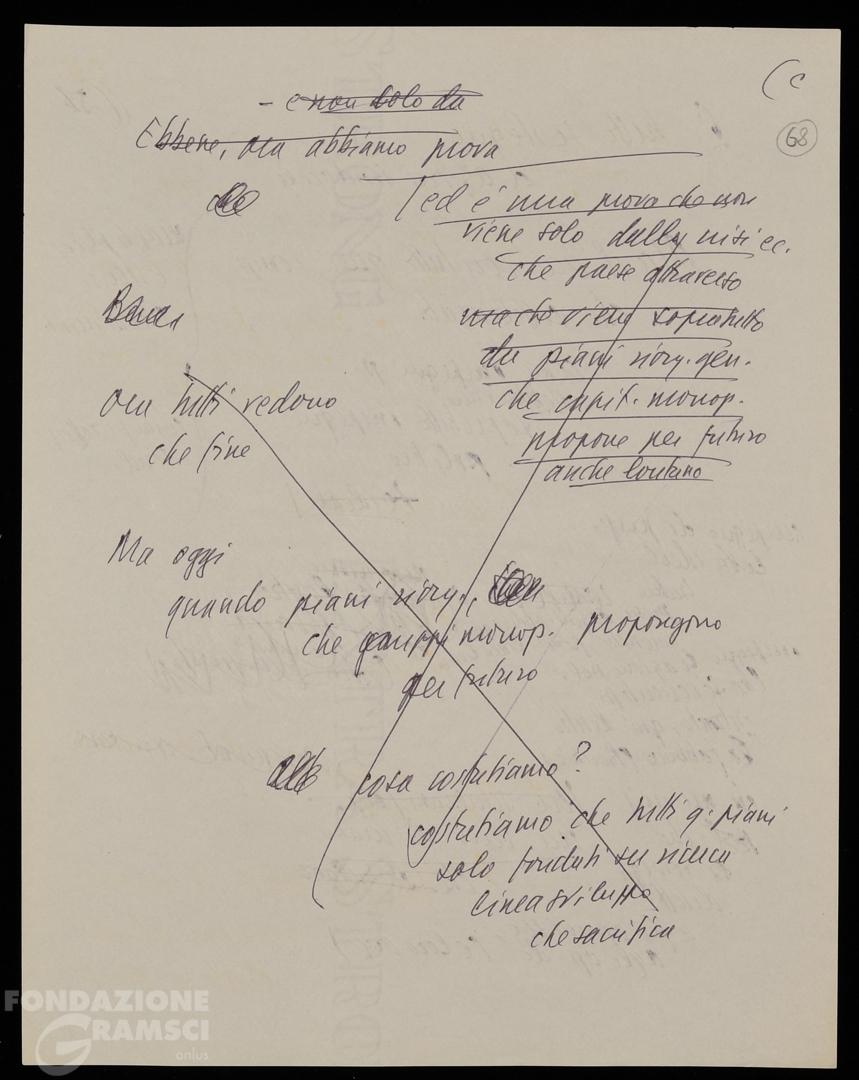 (c
68
- e non solo da
Ebbene, ora abbiamo prova
che
(ed è una prova che non
viene solo dalla crisi ec.
che paese attraversa
ma che viene sopratutto
da piani riorg. gen.
che capit. monop.
propone per futuro
anche lontano
ora tutti vedono
che fine
Ma oggi
quando piani riorg.,
che gruppi monop. propongono
per futuro
cosa constatiamo?
constatiamo che tutti q. piani
solo fondati su ricerca
linea sviluppo
che sacrifica
FONDAZIONE
GRAMSCI
onlus